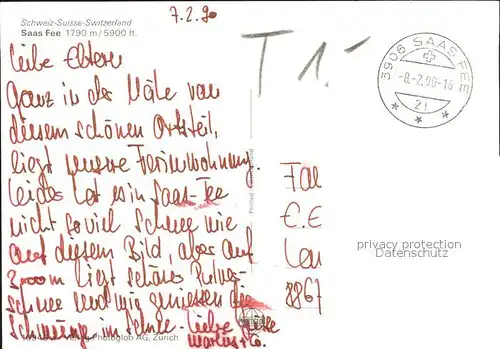 7.2.90
Schweiz-Suisse-Switzerland
Saas Fee 1790 m/5900 ft.
T 1.-
3906 SAAS FEE
-8.-2.90-16
2f
Liebe Eltern
Ganz in der Nähe von
diesem schönen Ortsteil,
liegt unsere Ferienwohnung.
Leider hat es in Saas-Fee
nicht soviel Schnee wie
auf diesem Bild, aber auf
3000m liegt schöner Pulver-
schnee und wir geniessen die
Schwünge im Schnee. Liebe Grüsse
Markus + Co.
Fam
E. E
Lan
8867
privacy protection
Datenschutz
Printed
Verlag Photoglob AG, Zürich